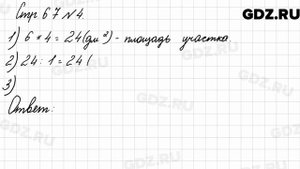 GDZ.RU
Стр 67 № 4.
1) 6 * 4 = 24 (дм²) - площадь участка.
2) 24 : 1 = 24 (
3)
Ответ: